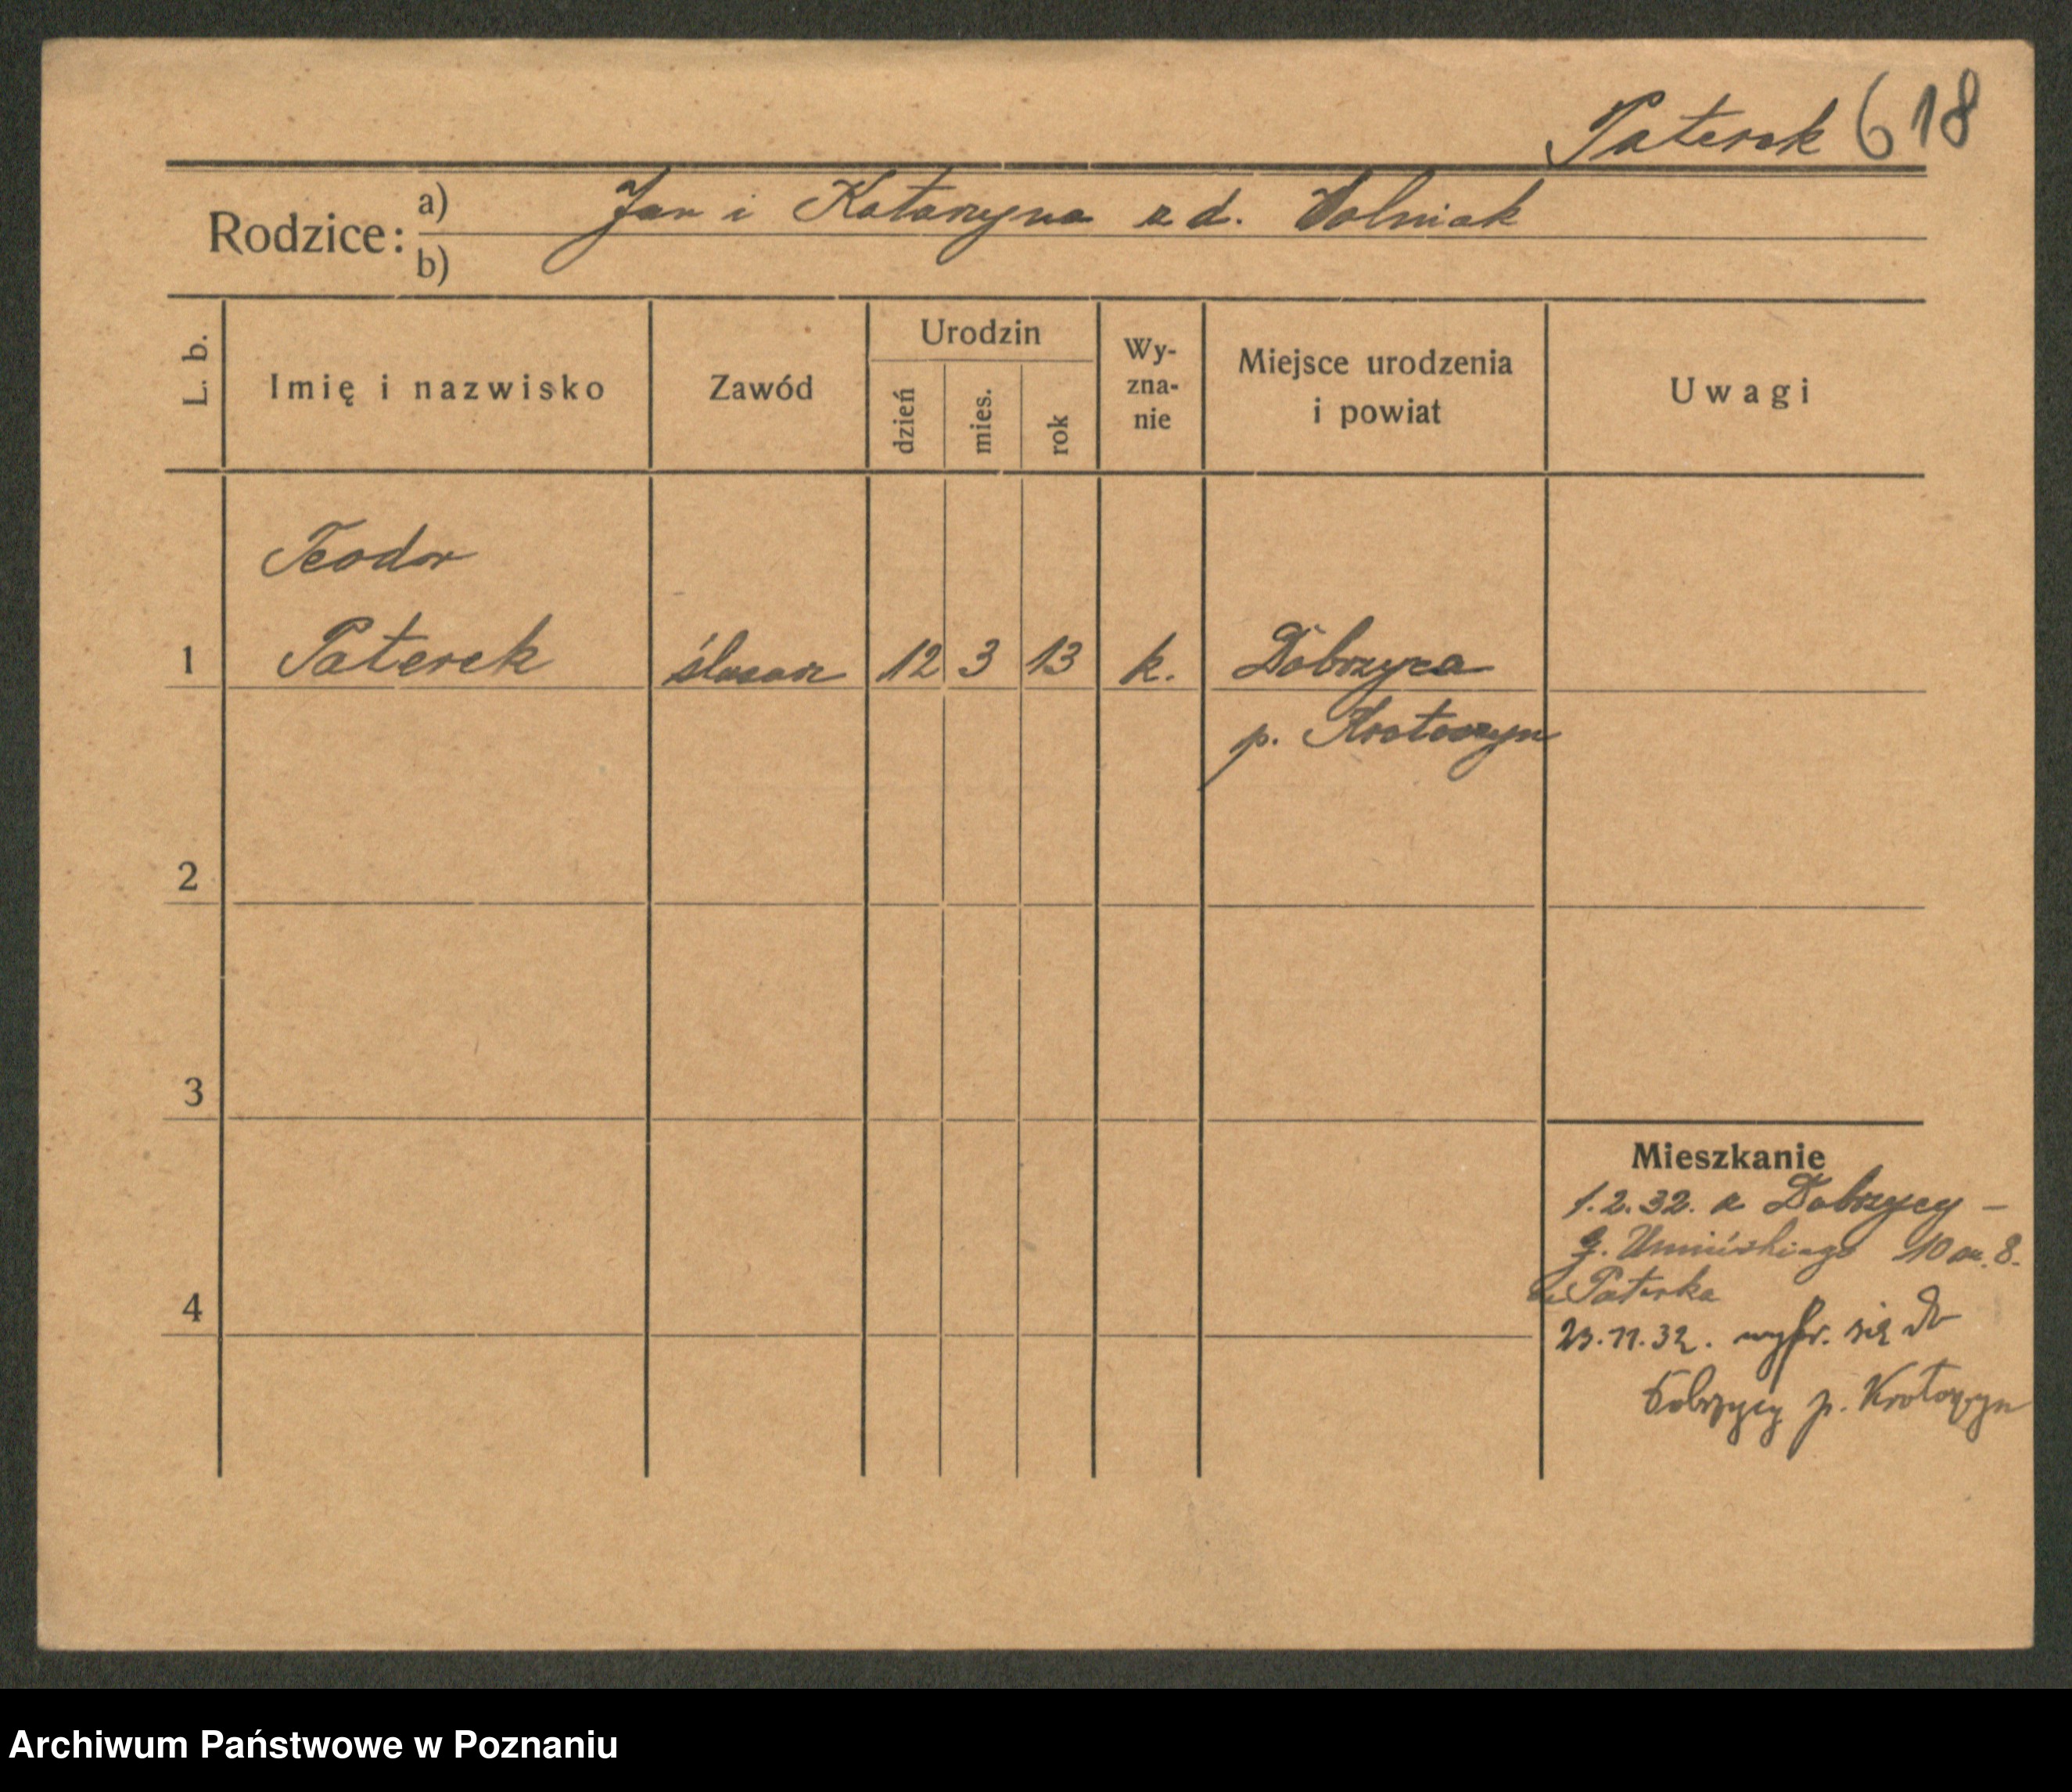 Paterek 618
Rodzice: a) Jan i Katarzyna z d. Wolniak
b)
L. b.
Imię i nazwisko
Zawód
Urodzin
dzień
mies.
rok
Wy-
zna-
nie
Miejsce urodzenia
i powiat
Uwagi
Teodor
1 Paterek ślusarz 12 3 13 k. Dobrzyca
p. Krotoszyn
2
3
4
Mieszkanie
1.2.32. z Dobrzycy –
G. Umińskiego 10 m. 8.
u Paterka
23.11.32. wypr. się do
Dobrzycy p. Krotoszyn
Archiwum Państwowe w Poznaniu